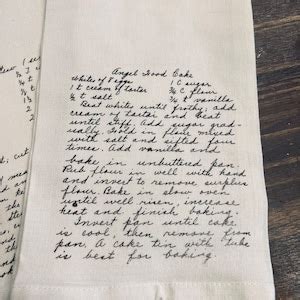 Angel Food Cake
Whites of 7 eggs 1 C sugar
1 t cream of tartar ¾ C flour
½ t salt ¾ t vanilla
Beat whites until frothy; add
cream of tartar and beat
until stiff. Add sugar grad-
ually. Fold in flour mixed
with salt and sifted four
times. Add vanilla and
bake in unbuttered pan.
Rub flour in well with hand
and invert to remove surplus
flour. Bake in slow oven
until well risen, increase
heat and finish baking.
Invert pan until cake
is cool, then remove from
pan. A cake tin with tube
is best for baking.